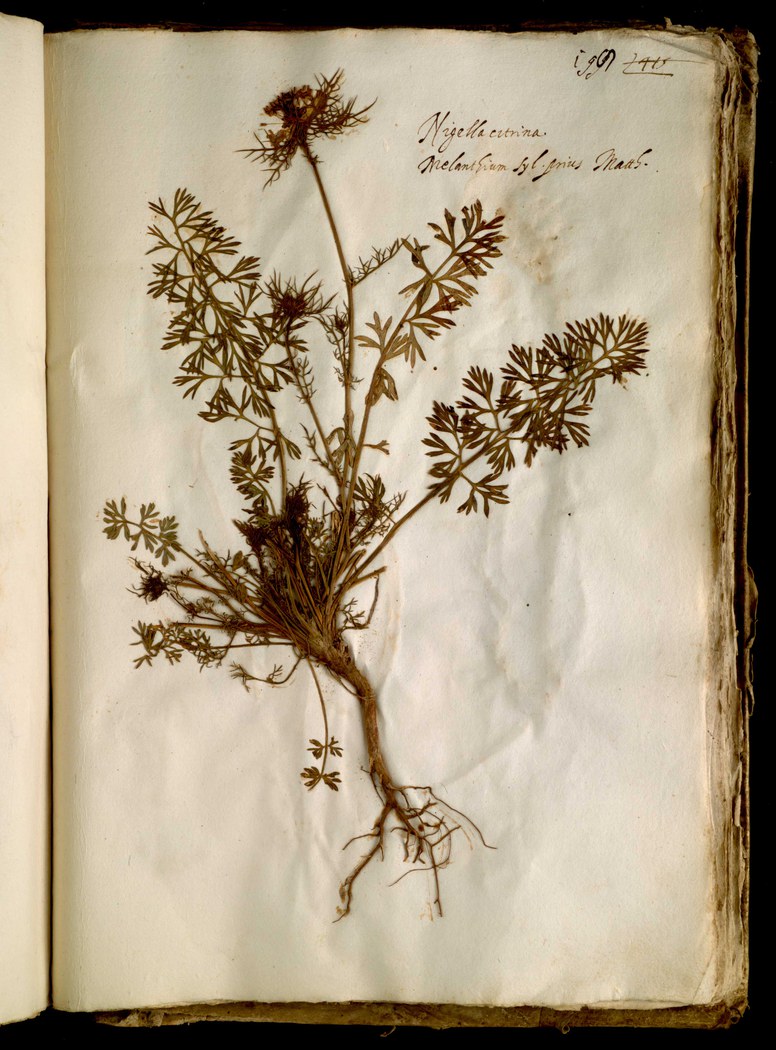 Nigella citrina.
Melanthium syl. prius Matth.